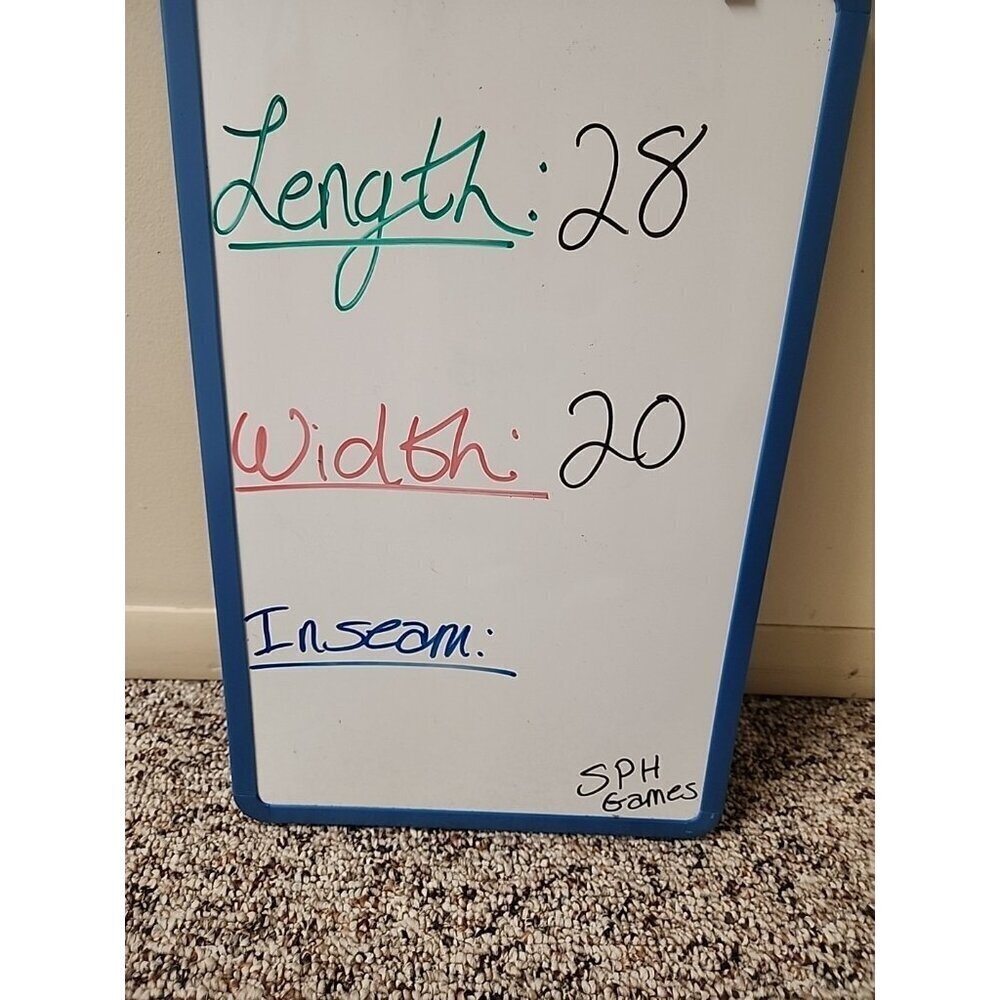 Length: 28
Width: 20
Inseam:
SPH
Games